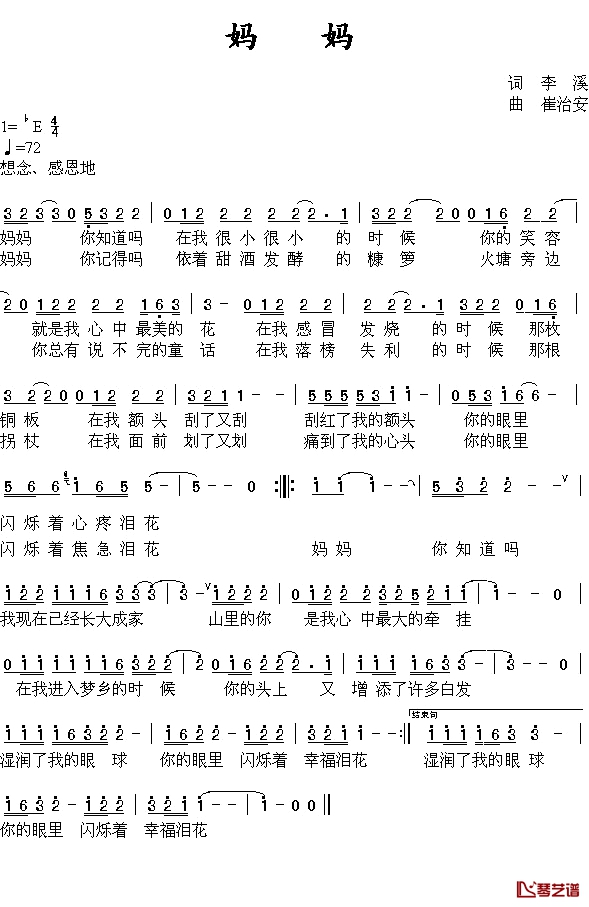 妈 妈
词 李 溪
曲 崔治安
1=♭E 4/4
♩=72
想念、感恩地
3 2 3 3 0 5 3 2 2 | 0 1 2 2 2 2 2 2 . 1 | 3 2 2 2 0 0 0 1 6 2 2 |
妈妈 你知道吗 在我 很 小 很 小 的 时 候 你的 笑 容
妈妈 你记得吗 依着 甜 酒 发 酵 的 糠 箩 火塘 旁 边
2 0 1 2 2 2 2 1 6 3 | 3 - 0 1 2 2 2 | 2 2 2 . 1 3 2 2 0 0 1 6 |
就是我 心 中 最美的 花 在我 感 冒 发 烧 的 时 候 那枚
你总有 说 不 完的童 话 在我 落 榜 失 利 的 时 候 那根
3 2 2 0 0 1 2 2 2 | 3 2 1 1 - - | 5 5 5 5 5 3 1 1 | 0 5 3 1 6 6 - |
铜 板 在我 额 头 刮了又刮 刮红了我的额头 你的眼里
拐 杖 在我 面 前 划了又划 痛到了我的心头 你的眼里
5 6 6 1 6 5 5 - | 5 - - 0 :||: 1 1 1 - - | 5 3 2 2 - - V |
闪 烁 着 心 疼 泪 花
闪 烁 着 焦 急 泪 花 妈 妈 你 知 道 吗
1 2 2 1 1 1 6 3 3 3 | 3 - V 1 2 2 2 | 0 1 2 2 2 3 2 5 2 1 1 |
我现在已经长大成家 山里的你 是我心 中最大的牵 挂
0 1 1 1 1 1 6 3 2 2 | 2 0 1 2 2 2 2 . 1 | 3 1 1 1 1 6 3 - | 3 - - 0 |
在我进入梦乡的时 候 你的头上 又 增 添了许多白发
结束句
1 1 1 6 6 3 2 | 1 6 3 2 - 1 2 2 | 3 2 1 1 - - :|| 1 1 1 6 6 3 2 |
湿润了我的眼 球 你的眼里 闪烁着 幸福泪花 湿润了我的眼 球
1 6 3 2 - 1 2 2 | 3 2 1 1 - - | 1 - 0 0 ||
你的眼里 闪烁着 幸福泪花
琴艺谱